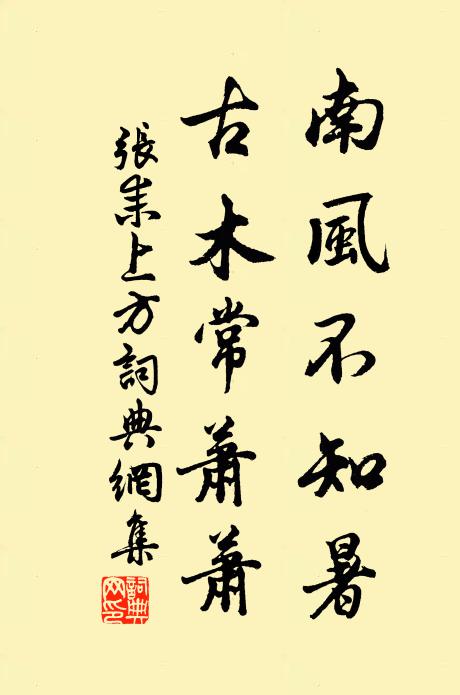 南風不知暑
古木常蕭蕭
張耒上方詞典網集
詞典
网印